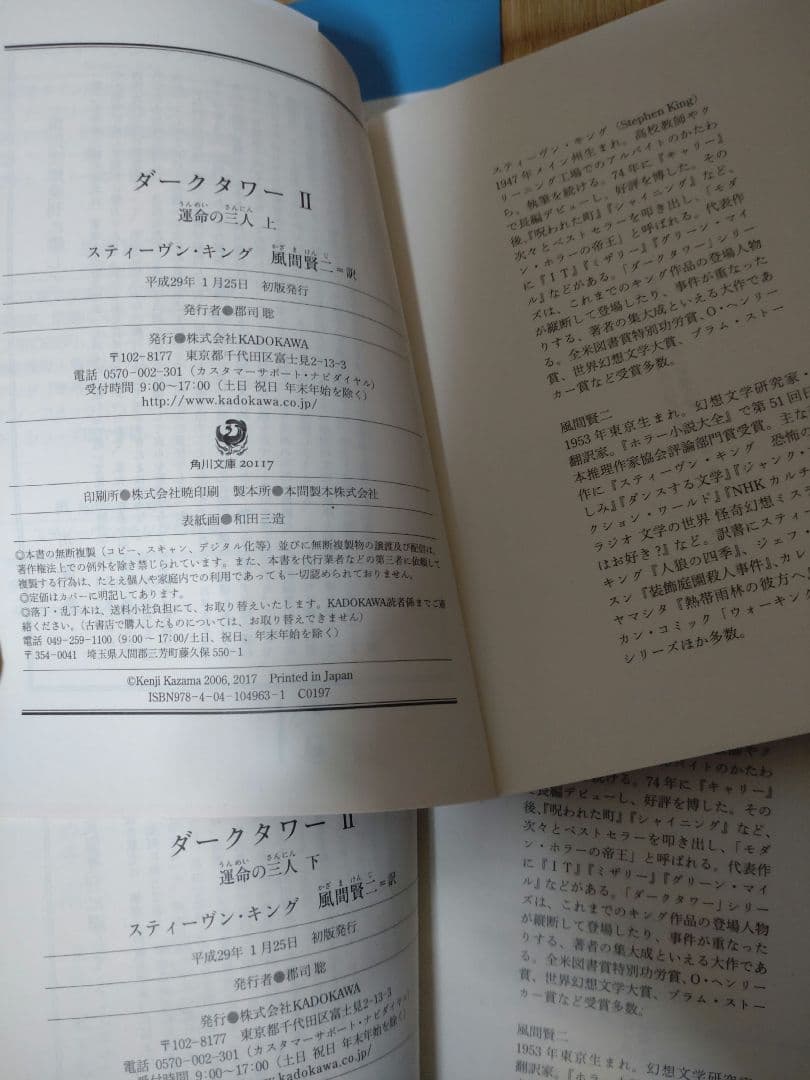 ダークタワー II
うんめい さんにん
運命の三人 上
かざ ま けん じ
スティーヴン・キング 風間賢二＝訳
平成29年 1月25日 初版発行
発行者●郡司 聡
発行●株式会社KADOKAWA
〒102-8177 東京都千代田区富士見2-13-3
電話 0570-002-301（カスタマーサポート・ナビダイヤル）
受付時間 9:00〜17:00（土日 祝日 年末年始を除く）
http://www.kadokawa.co.jp/
角川文庫 20117
印刷所●株式会社暁印刷 製本所●本間製本株式会社
表紙画●和田三造
◎本書の無断複製（コピー、スキャン、デジタル化等）並びに無断複製物の譲渡及び配信は、
著作権法上での例外を除き禁じられています。また、本書を代行業者などの第三者に依頼して
複製する行為は、たとえ個人や家庭内での利用であっても一切認められておりません。
◎定価はカバーに明記してあります。
◎落丁・乱丁本は、送料小社負担にて、お取り替えいたします。KADOKAWA読者係までご連
絡ください。（古書店で購入したものについては、お取り替えできません）
電話 049-259-1100（9:00〜17:00/土日、祝日、年末年始を除く）
〒354-0041 埼玉県入間郡三芳町藤久保550-1
©Kenji Kazama 2006, 2017 Printed in Japan
ISBN978-4-04-104963-1 C0197
スティーヴン・キング（Stephen King）
1947年メイン州生まれ。高校教師やク
リーニング工場でのアルバイトのかたわ
ら、執筆を続ける。74年に『キャリー』
で長編デビューし、好評を博した。その
後、『呪われた町』『シャイニング』など、
次々とベストセラーを叩き出し、「モダ
ン・ホラーの帝王」と呼ばれる。代表作
に『IT』『ミザリー』『グリーン・マイ
ル』などがある。「ダークタワー」シリー
ズは、これまでのキング作品の登場人物
が縦断して登場したり、事件が重なった
りする、著者の集大成といえる大作であ
る。全米図書賞特別功労賞、O・ヘンリー
賞、世界幻想文学大賞、ブラム・ストー
カー賞など受賞多数。
風間賢二
1953年東京生まれ。幻想文学研究家・
翻訳家。『ホラー小説大全』で第51回日
本推理作家協会評論部門賞受賞。主な
作に『スティーヴン・キング 恐怖の
しみ』『ダンスする文学』『ジャンク・
クション・ワールド』『NHKカルチ
ラジオ 文学の世界 怪奇幻想ミス
はお好き?』など。訳書にスティー
キング『人狼の四季』、ジェフ・
スン『装飾庭園殺人事件』、カレ
ヤマシタ『熱帯雨林の彼方へ』
カン・コミック「ウォーキング
シリーズほか多数。
ダークタワー II
うんめい さんにん
運命の三人 下
かざ ま けん じ
スティーヴン・キング 風間賢二＝訳
平成29年 1月25日 初版発行
発行者●郡司 聡
発行●株式会社KADOKAWA
〒102-8177 東京都千代田区富士見2-13-3
電話 0570-002-301（カスタマーサポート・ナビダイヤル）
受付時間 9:00〜17:00（土日 祝日 年末年始を除く）
校教師やク
バイトのかたわ
続ける。74年に『キャリー』
で長編デビューし、好評を博した。その
後、『呪われた町』『シャイニング』など、
次々とベストセラーを叩き出し、「モダ
ン・ホラーの帝王」と呼ばれる。代表作
に『IT』『ミザリー』『グリーン・マイ
ル』などがある。「ダークタワー」シリー
ズは、これまでのキング作品の登場人物
が縦断して登場したり、事件が重なった
りする、著者の集大成といえる大作であ
る。全米図書賞特別功労賞、O・ヘンリー
賞、世界幻想文学大賞、ブラム・ストー
カー賞など受賞多数。
風間賢二
1953年東京生まれ。幻想文学研究